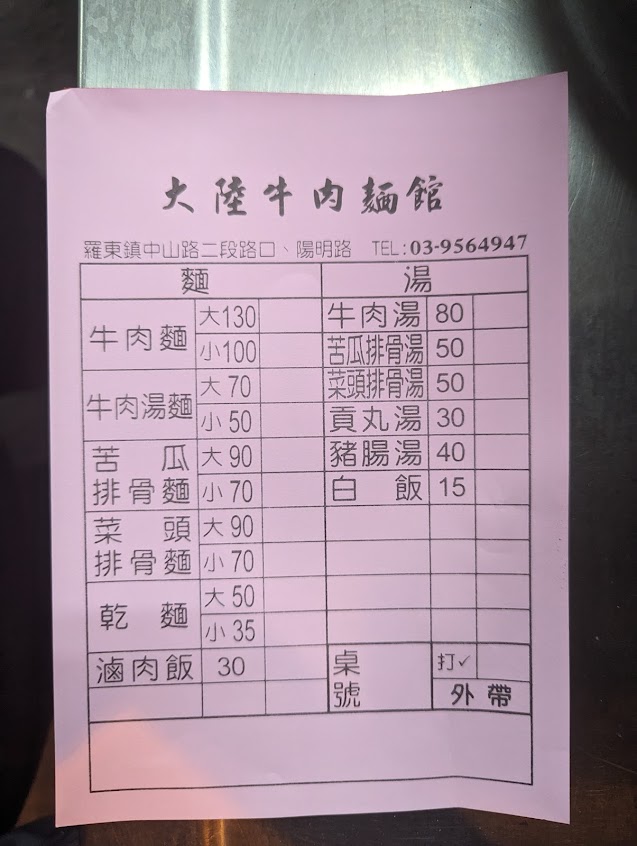 大陸牛肉麵館
羅東鎮中山路二段路口、陽明路 TEL:03-9564947
麵 湯
牛肉麵 大130 牛肉湯 80
小100 苦瓜排骨湯 50
牛肉湯麵 大 70 菜頭排骨湯 50
小 50 貢丸湯 30
苦瓜 大 90 豬腸湯 40
排骨麵 小 70 白飯 15
菜頭 大 90
排骨麵 小 70
乾麵 大 50
小 35
滷肉飯 30 桌 打✓
號 外帶